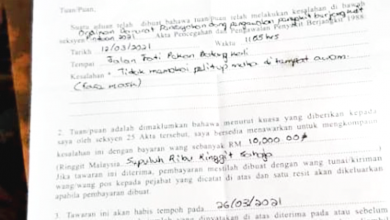 Tuan/Puan,
Suatu aduan telah dibuat bahawa tuan/puan telah melakukan kesalahan di bawah
seksyen Akta Pencegahan dan Pengawalan Penyakit Berjangkit 1988.
Tarikh 12/03/2021 Waktu 1105 HRS
Tempat Jalan Pekan Batang Kali
Kesalahan - Tidak memakai pelitup muka di tempat awam
(face mask)
2. Tuan/puan adalah dimaklumkan bahawa menurut kuasa yang diberikan kepada
saya oleh seksyen 25 Akta tersebut, saya bersedia menawarkan untuk mengkompaun
kesalahan ini dengan bayaran wang sebanyak RM 10,000.00
(Ringgit Malaysia, Sepuluh Ribu Ringgit Sahaja
Jika tawaran ini diterima, pembayaran mestilah dibuat dengan wang tunai/kiriman
wang/wang pos kepada pejabat yang dicatat di atas dan satu resit akan dikeluarkan
apabila pembayaran dibuat.
3. Tawaran ini akan habis tempoh pada 26/03/2021